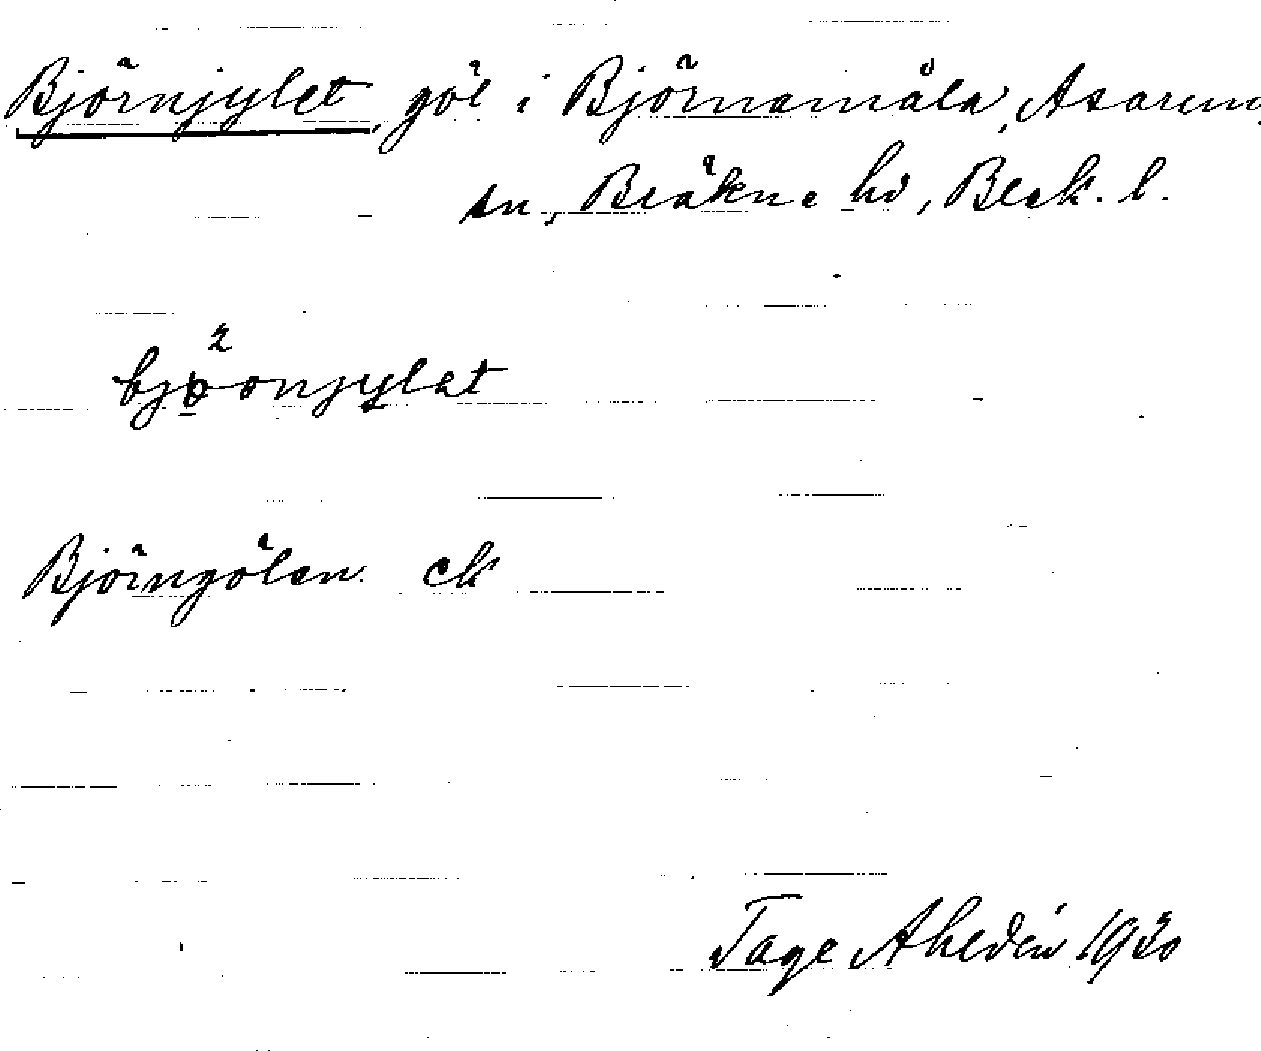 Björnjylet, göl i Björnamåla, Asarum
sn, Bräkne hd, Blek. l.
2
bjöonjylet
Björngölen ek
Tage Ahldén 1930